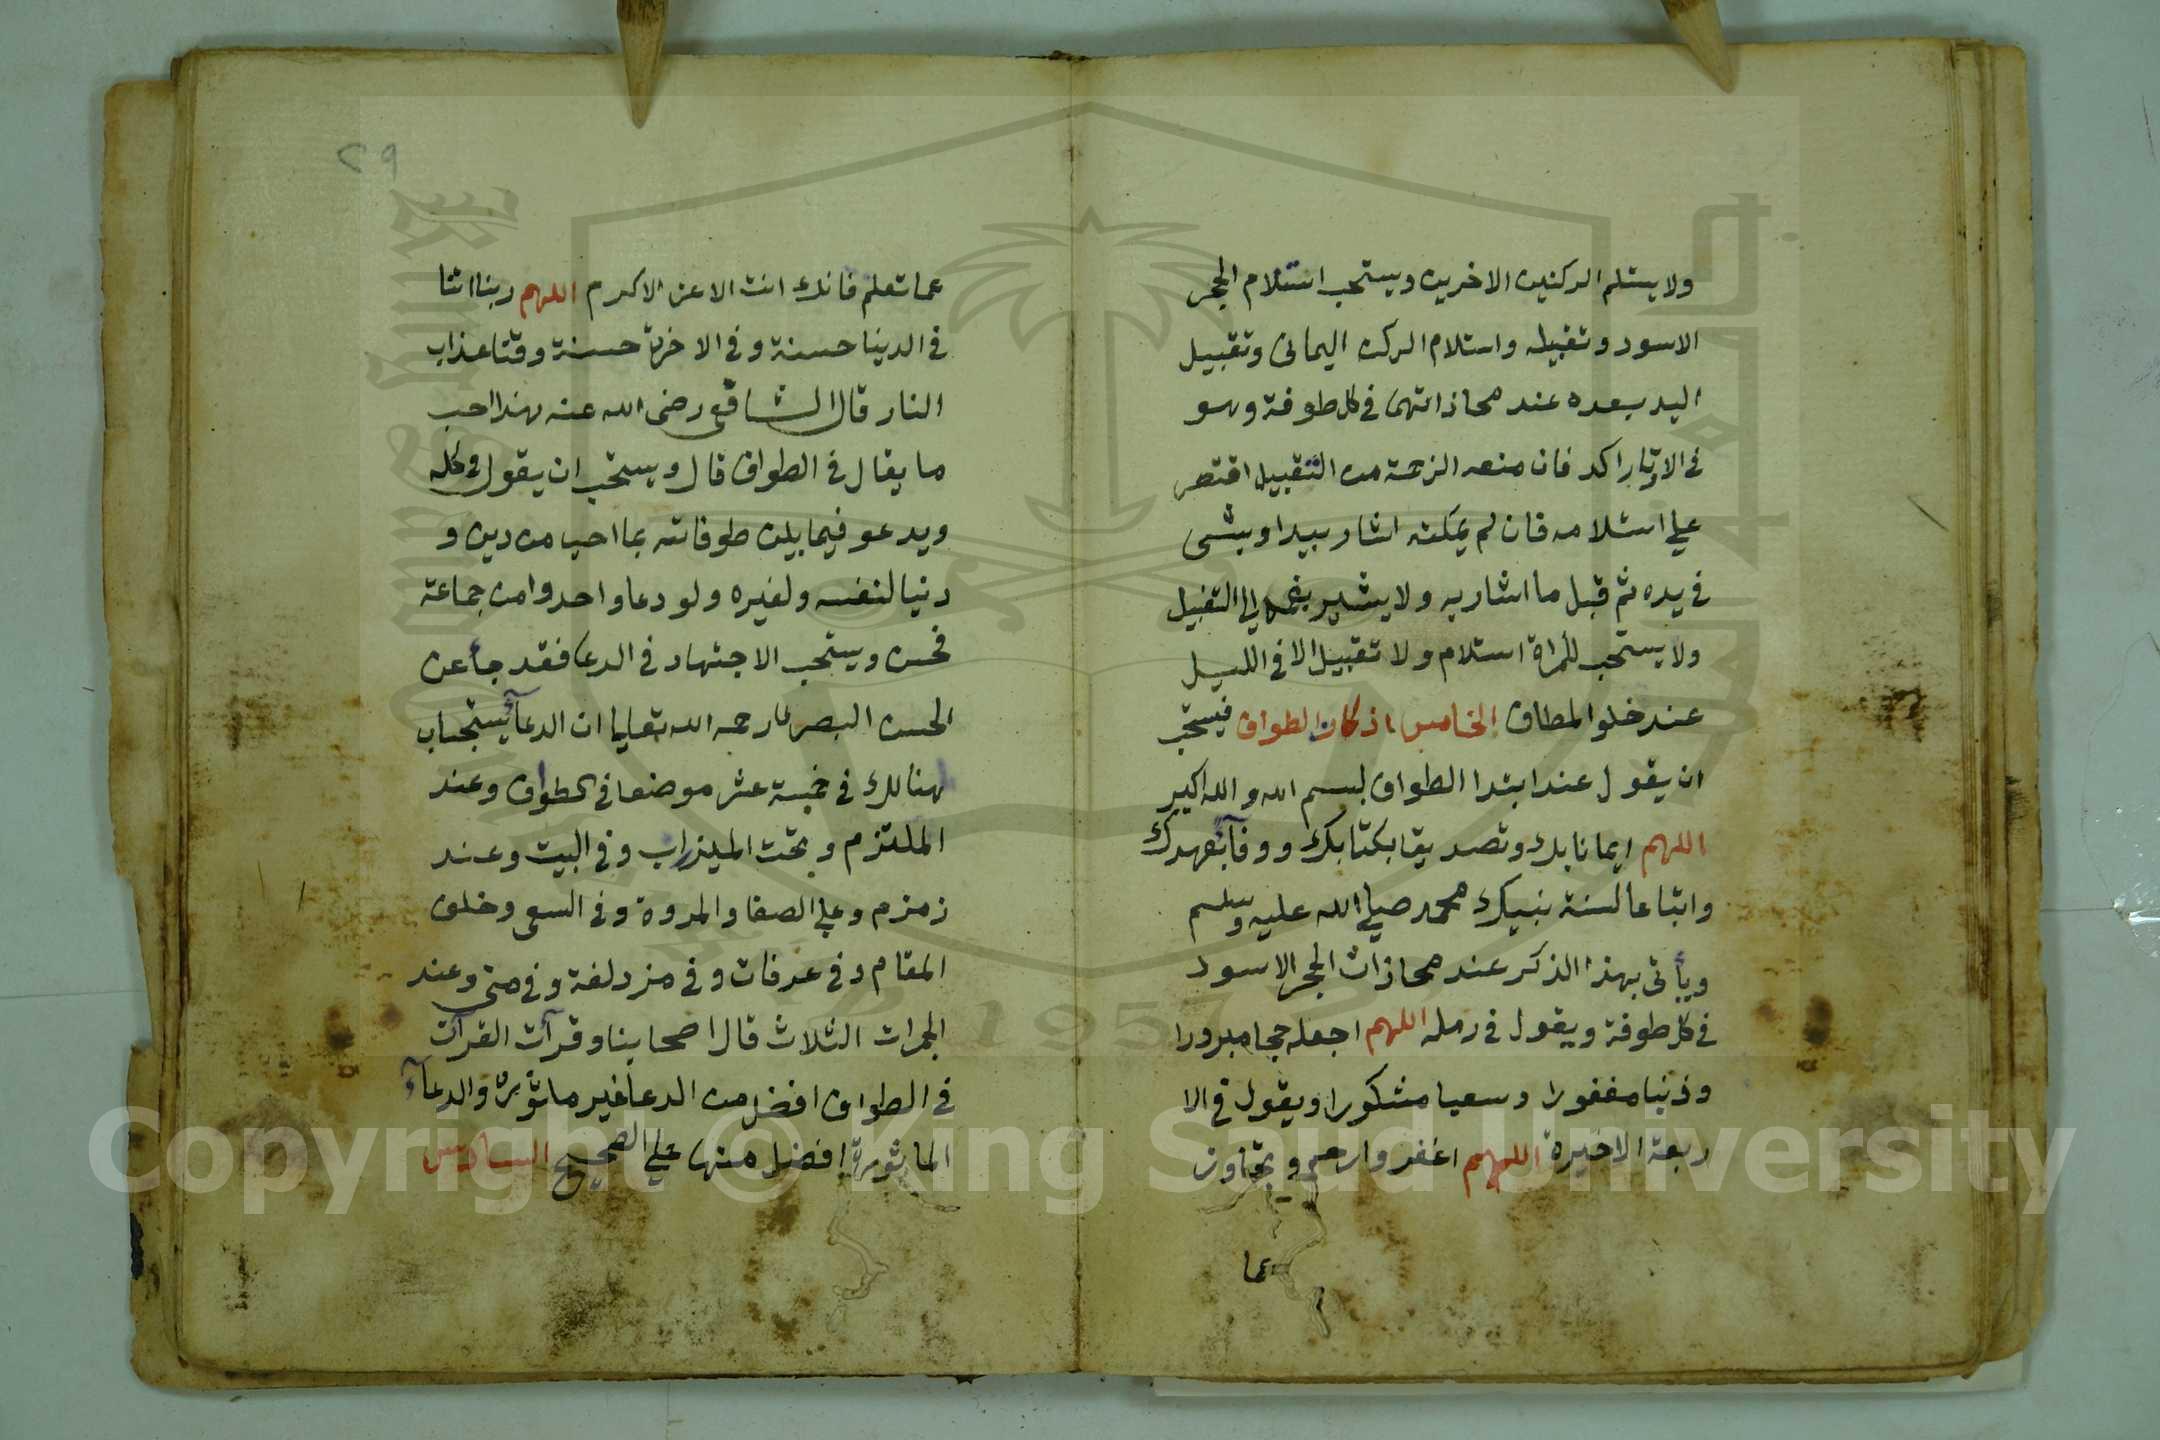 ولا يستلم الركنين الاخرين ويستحب استلام الحجر
الاسود وتقبيله واستلام الركن اليمانى وتقبيل
اليد بعده عند محاذاتهما فى كل طوفة وهو
فى الاوتار اكد فان منعه الزحمة من التقبيل اقتصر
على استلامه فان لم يمكنه اشار بيده او بشى
فى يده ثم قبل ما اشار به ولا يشير بفمه الى التقبيل
ولا يستحب للمراة استلام ولا تقبيل الا فى الليل
عند خلو المطاف الخامس اذكار الطواف فيستحب
ان يقول عند ابتدا الطواف بسم الله والله اكبر
اللهم ايمانا بك وتصديقا بكتابك ووفآئبعهدك
واتباعا لسنة نبيك محمد صلى الله عليه وسلم
ويأتى بهذا الذكر عند محاذات الحجر الاسود
فى كل طوفة ويقول فى رمله اللهم اجعله حجا مبرورا
وذنبا مغفورا وسعيا مشكورا ويقول فى الا
ربعة الاخيرة اللهم اغفر وارحم وتجاوز
عما
٢٩
عما تعلم فانك انت الاعز الاكرم اللهم ربنا اتنا
فى الدينا حسنة وفى الاخرة حسنة وقنا عذاب
النار قال الشافعى رضى الله عنه هذا احب
ما يقال فى الطواف قال ويستحب ان يقول فى كله
ويدعو فيما بين طوفاته بما احب من دين و
دنيا لنفسه ولغيره ولو دعا واحد وامن جماعة
فحسن ويستحب الاجتهاد فى الدعا فقد جأ عن
الحسن البصرى رحمه الله تعالى ان الدعآء يستجاب
هنالك فى خمسة عشر موضعا فى الطواف وعند
الملتزم وتحت الميزاب وفى البيت وعند
زمزم وعلى الصفا والمروة وفى السعى وخلف
المقام وفى عرفات وفى مزدلفة وفى منى وعند
الجمرات الثلاث قال اصحابنا وقرآت القرآن
فى الطواف افضل من الدعا غير ماثوره والدعآء
الماثورة افضل منها على الصحيح السادس
Copyright © King Saud University
1957